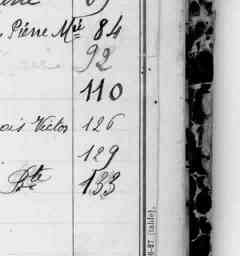 Pierre Mie 84
92
110
ois Victor 126
129
Bte 133
6-27 (table).